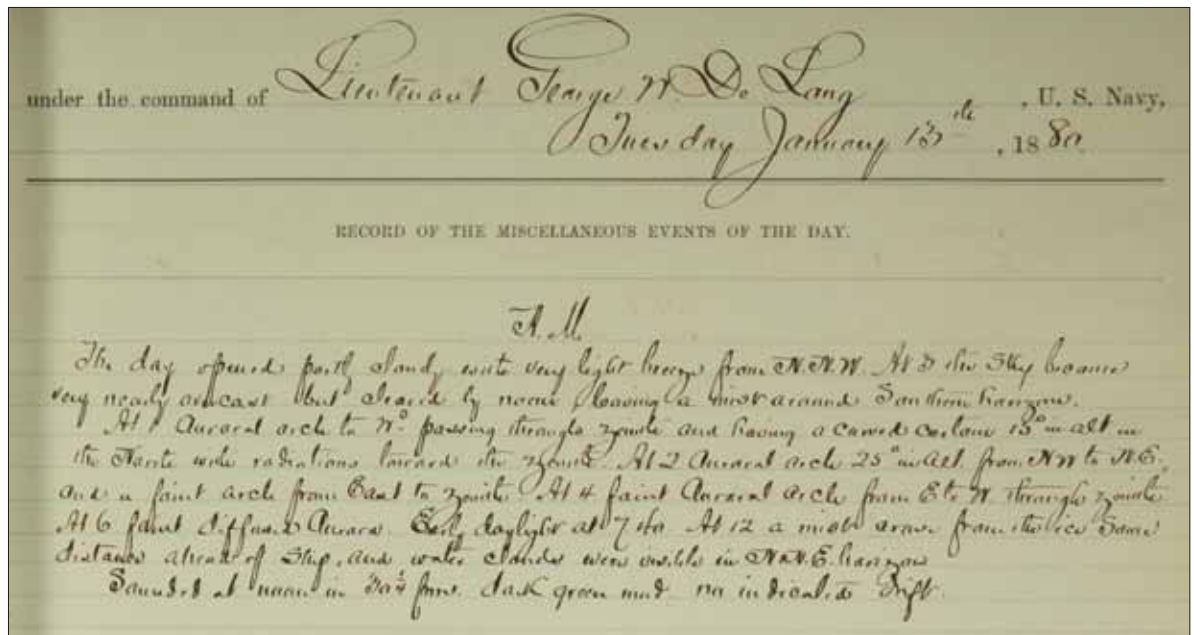 under the command of Lieutenant George W. De Long , U. S. Navy,
Tuesday January 13th , 1880.
RECORD OF THE MISCELLANEOUS EVENTS OF THE DAY.
A.M.
The day opened partly cloudy with very light breeze from N.N.W. At 3 the sky became
very nearly overcast but cleared by noon leaving a mist around Southern horizon.
At 1 Auroral arch to passing through zenith and having a curved curtain 15° in alt in
the North with radiations toward the zenith. At 2 Auroral arch 25° in alt. from NW to N.E.,
and a faint arch from East to zenith. At 4 faint Auroral arch from E to W through zenith
At 6 faint diffused Aurora. Early daylight at 7 At 12 a mist arose from the ice some
distance ahead of Ship, and water clouds were visible in N.N.E. horizon
Sounded at noon in 30¼ fms. dark green mud no indicated drift.